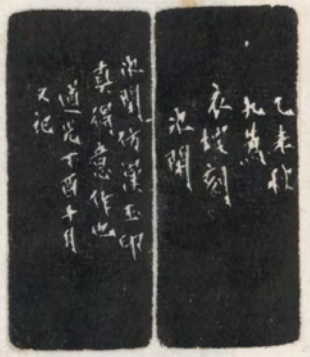 乙未秋
九
衣刻
次閑
次閑仿漢玉印
真得意作也
道光丁酉月
又記